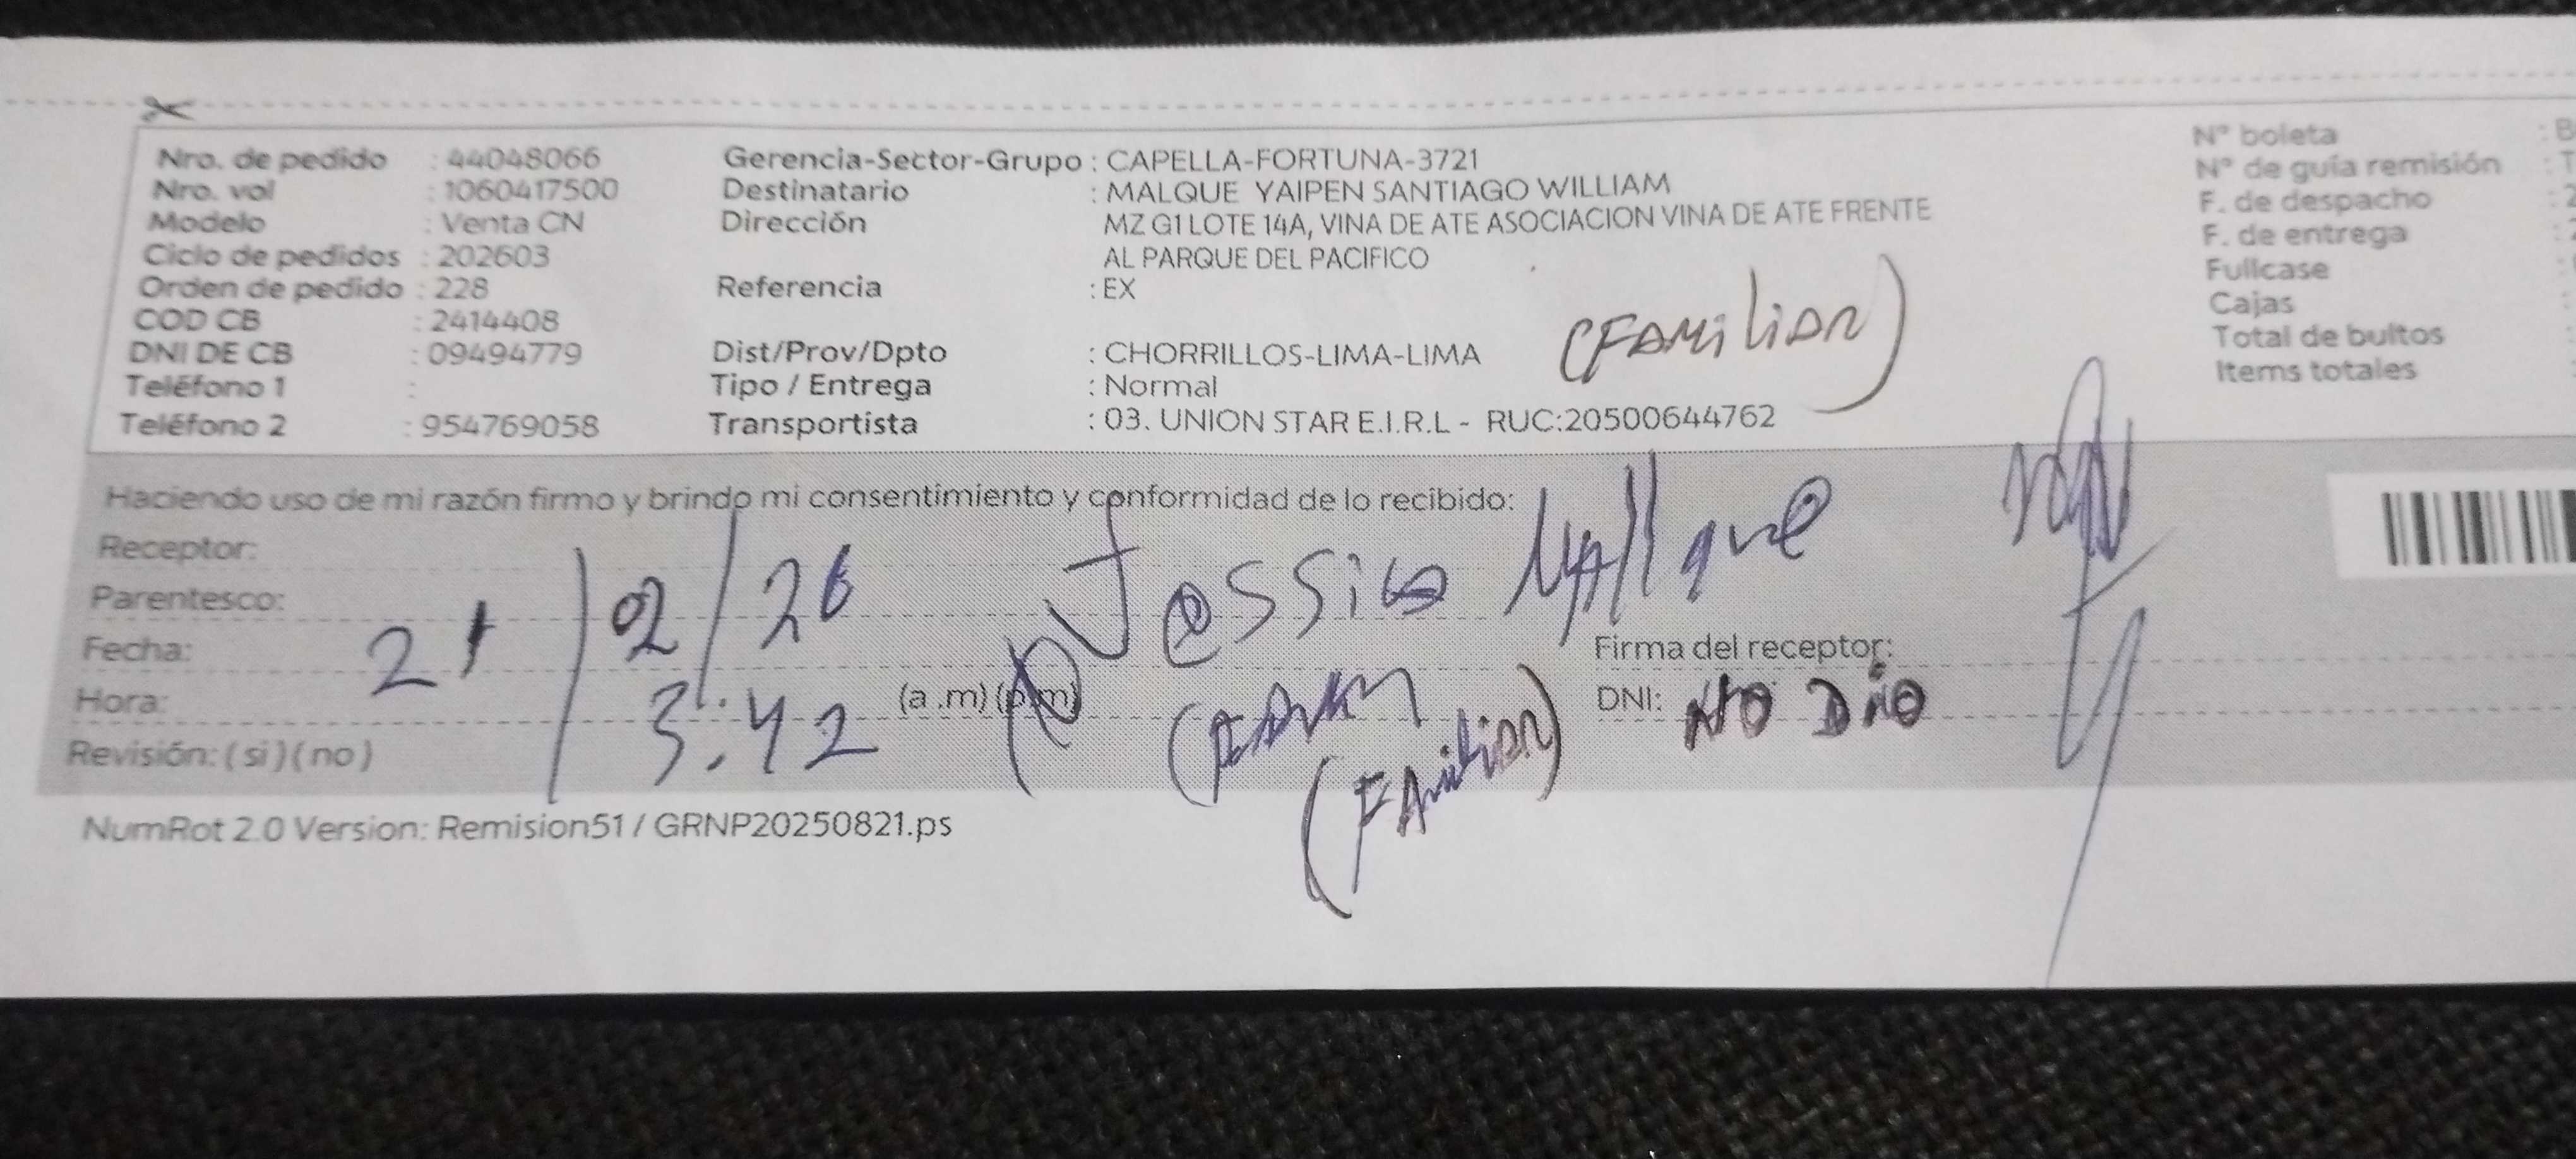 Nro. de pedido : 44048066 Gerencia-Sector-Grupo : CAPELLA-FORTUNA-3721 N° boleta : B
Nro. vol : 1060417500 Destinatario : MALQUE YAIPEN SANTIAGO WILLIAM N° de guía remisión : T
Modelo : Venta CN Dirección MZ G1 LOTE 14A, VINA DE ATE ASOCIACION VINA DE ATE FRENTE F. de despacho : 2
Ciclo de pedidos : 202603 AL PARQUE DEL PACIFICO F. de entrega : 2
Orden de pedido : 228 Referencia : EX Fullcase :
COD CB : 2414408 (FAMiliAR) Cajas :
DNI DE CB : 09494779 Dist/Prov/Dpto : CHORRILLOS-LIMA-LIMA Total de bultos :
Teléfono 1 : Tipo / Entrega : Normal Items totales :
Teléfono 2 : 954769058 Transportista : 03. UNION STAR E.I.R.L - RUC:20500644762
Haciendo uso de mi razón firmo y brindo mi consentimiento y conformidad de lo recibido:
Receptor: Jessica MAllque
Parentesco:
Fecha: 21/02/26 Firma del receptor:
Hora: 3:42 (a .m) (p.m) DNI: NO DIO
Revisión: ( si ) ( no ) (FAMiliAR)
NumRot 2.0 Version: Remision51 / GRNP20250821.ps